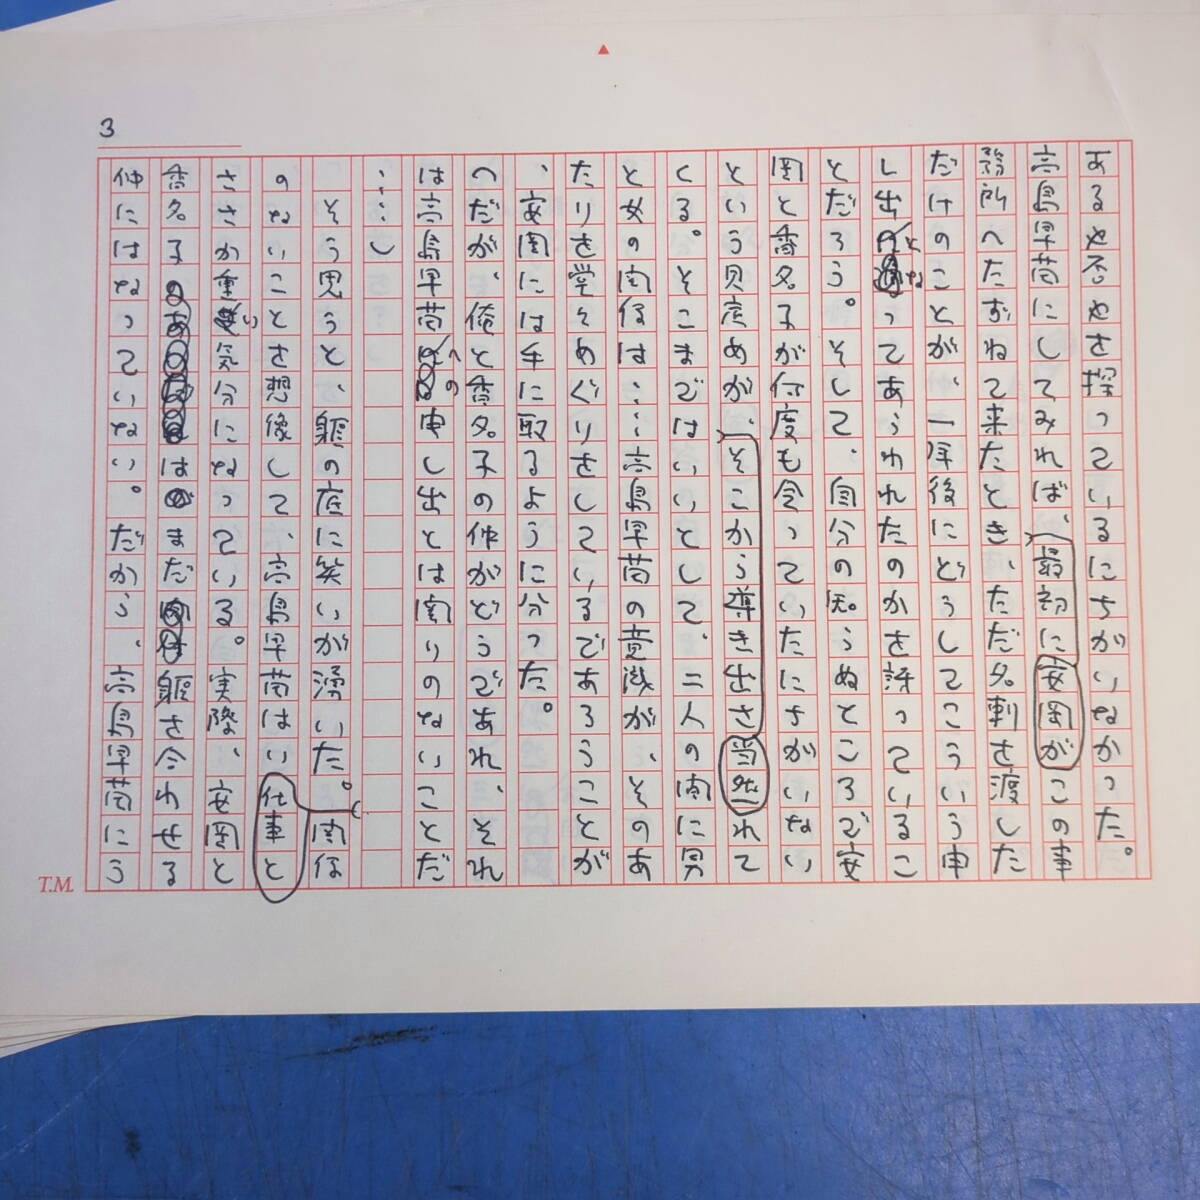 3
あるや否やを探っているにちがいなかった。
高島早苗にしてみれば、最初に安岡がこの事
務所へたずねて来たとき、ただ名刺を渡した
だけのことが、一年後にどうしてこういう申
し出となってあらわれたのかを訝っているこ
とだろう。そして、自分の知らぬところで安
岡と香名子が何度も会っていたにちがいない
という見定めが、そこから導き出さ当然れて
くる。そこまではいいとして、二人の間に男
と女の関係は……高島早苗の意識が、そのあ
たりを堂々めぐりをしているであろうことが
、安岡には手に取るように分った。
(だが、俺と香名子の仲がどうであれ、それ
は高島早苗への申し出とは関りのないことだ
……)
そう思うと、躯の底に笑いが湧いた。関係
のないことを想像して、高島早苗はい仕事と
ささか重い気分になっている。実際、安岡と
香名子はまだ躯を合わせる
仲にはなっていない。だから、高島早苗にう
T.M.